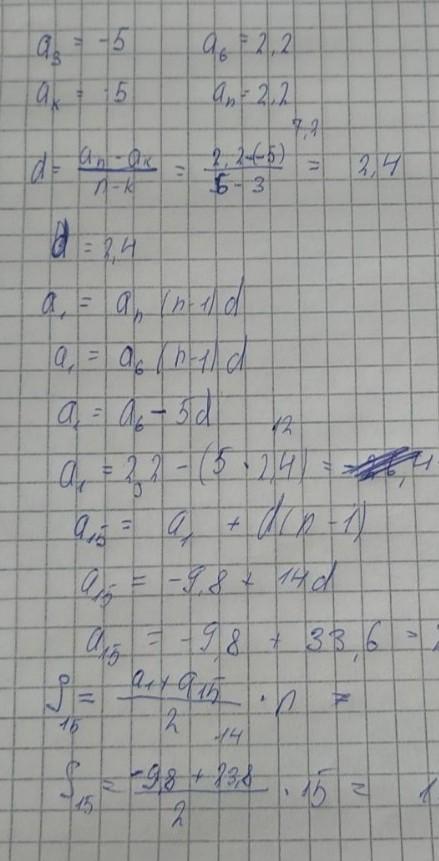 a₃ = -5   a₆ = 2,2
aₖ = -5   aₙ = 2,2
7,2
d = (aₙ - aₖ)/(n-k) = (2,2-(-5))/(6-3) = 2,4
d = 2,4
a₁ = aₙ (n-1)d
a₁ = a₆ (n-1)d
a₁ = a₆ - 5d
12
a₁ = 2,2 - (5 · 2,4) =
a₁₅ = a₁ + d(n-1)
a₁₅ = -9,8 + 14d
a₁₅ = -9,8 + 33,6 =
S₁₅ = (a₁ + a₁₅)/2 · n =
14
S₁₅ = (-9,8 + 23,8)/2 · 15 = 1